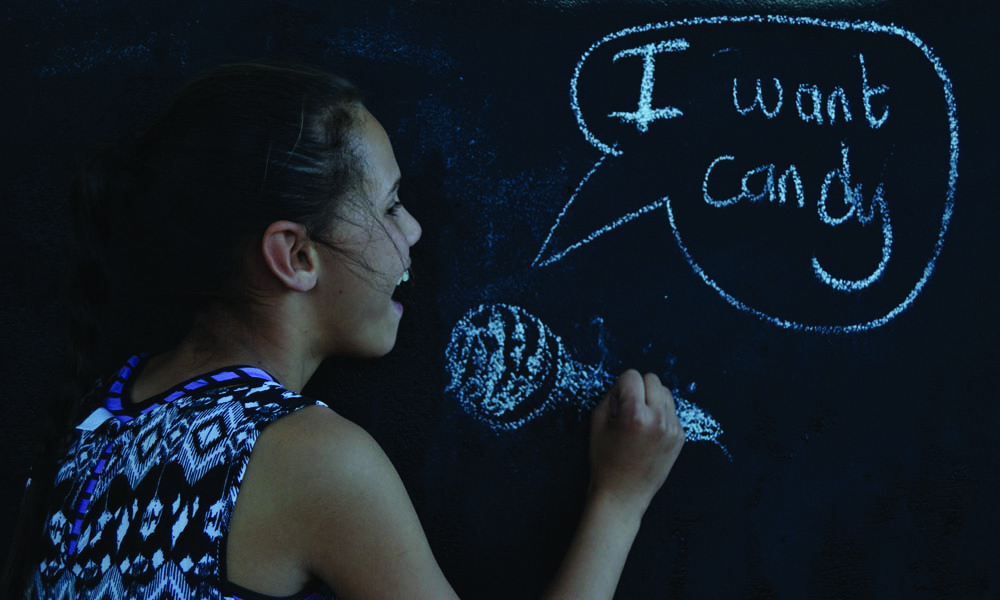 I want
candy